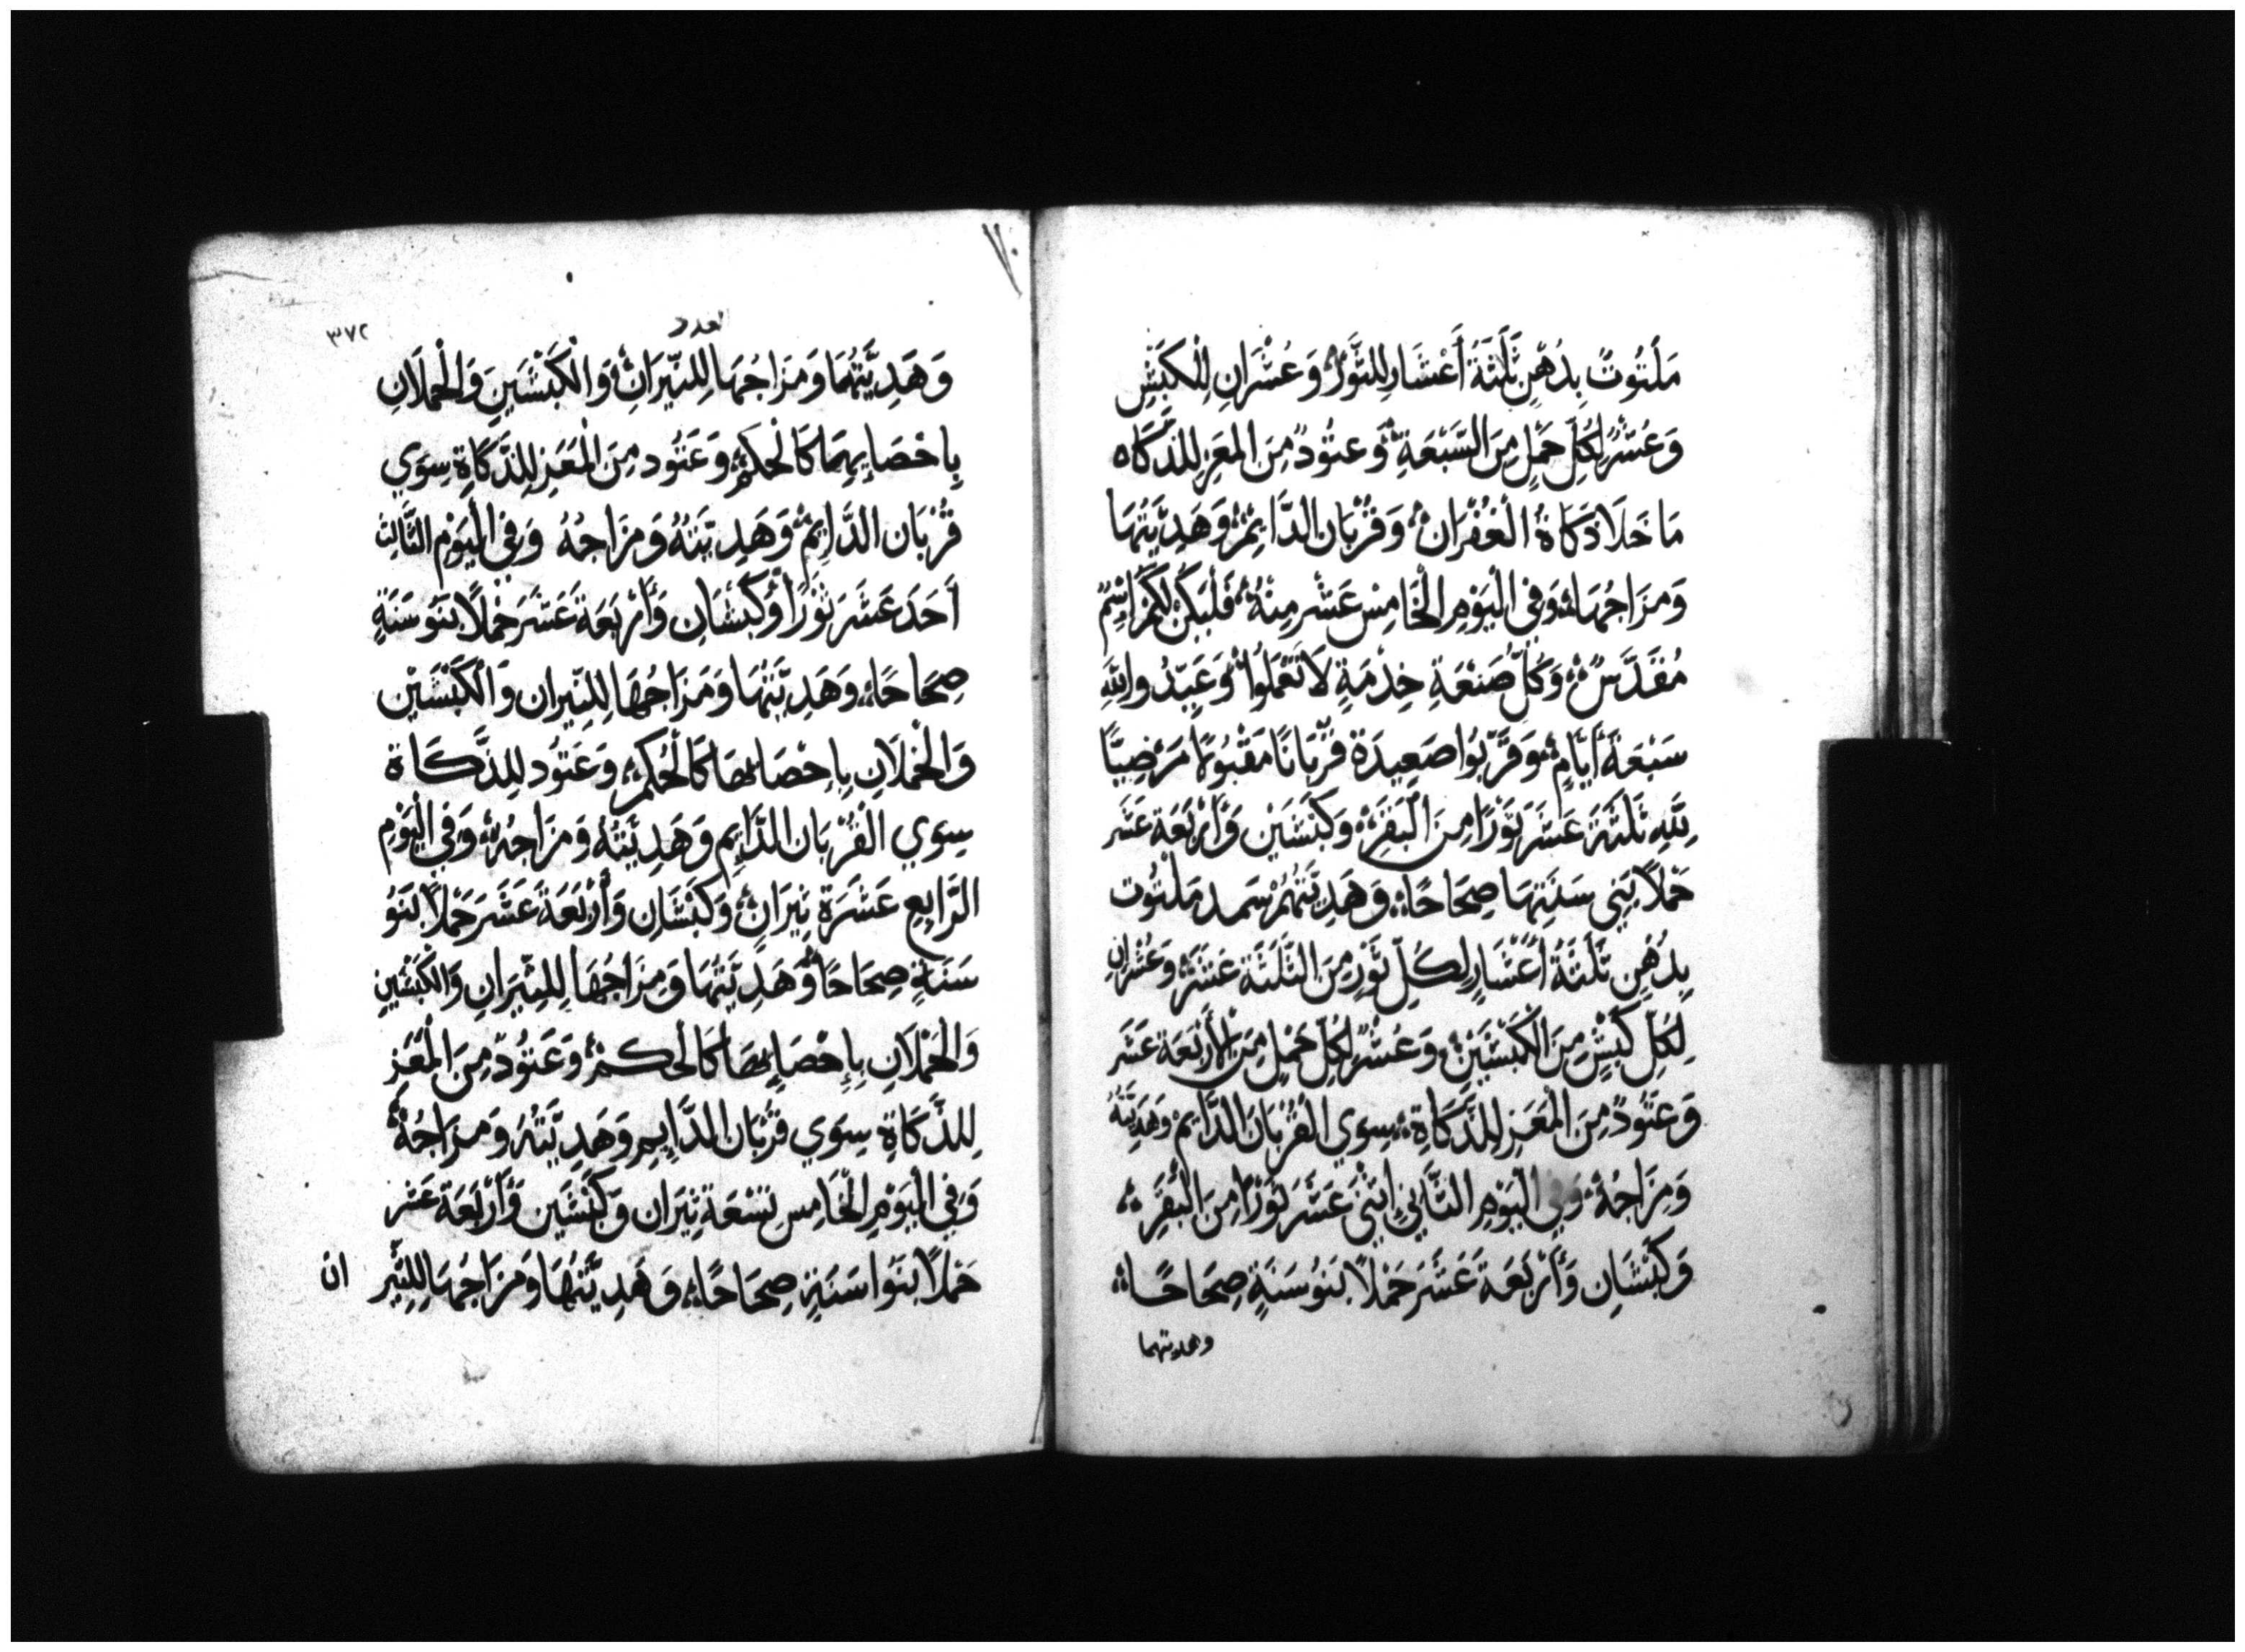 مَلتُوتٌ بِدُهْنٍ ثَلَثَةُ أَعْشَارٍ لِلثَّوْرِ وَعُشْرَانِ لِلْكَبْشِ
وَعُشْرٌ لِكُلِّ حَمَلٍ مِنَ السَّبْعَةِ وَعتُودٌ مِنَ المعَزِ لِلذَّكَاه
مَا خَلَا ذَكَاةُ الْغُفْرَانِ وَقُرْبَان الدَّايِمِ وَهَدِيَّتهَا
وَمزَاجُهَا وَفِي الْيَوْمِ الْخَامِسْ عَشَر مِنْهُ فَلْيَكُنْ لَكُمْ اسْمٌ
مُقَدَّسٌ وَكُلُّ صَنْعَةِ خِدْمَةٍ لَا تَعْمَلُوا وَعَيِّدُوا لِلَّهِ
سَبْعَةَ أَيَّامٍ وَقَرِّبُوا صَعِيدَة قُرْبَانًا مَقْبُولًا مَرْضِيًّا
لِلَّهِ ثَلَثَةَ عَشَرَ ثَوْرًا مِنَ الْبَقَرِ وَكَبْشَيْن وَأَرْبَعَة عَشَر
حَمْلًا بَنِي سَنَتِهَا صِحَاحًا وَهَدِيَّتهُمْ سَمد مَلْتُوت
بِدُهْنٍ ثَلَثَةُ أَعْشَارٍ لِكُلِّ ثَوْرٍ مِنَ الثَّلَثَة عَشَر وَعُشْرَانِ
لِكُلِّ كَبْشٍ مِنَ الْكَبْشَيْنِ وَعُشْرٌ لِكُلِّ حَمَلٍ مِنَ الْأَرْبَعَة عَشَر
وَعَتُودٌ مِنَ الْمَعَزِ لِلذَّكَاةِ سِوَي الْقُرْبَان الدَّايِم وَهَدِيَّتهُ
وَمِزَاجهُ وَفِي الْيَوْمِ الثَّانِي إِثْنَيْ عَشَر ثَوْرًا مِنَ الْبَقَرِ
وَكَبْشَان وَأَرْبَعَة عَشَر حَمْلًا بَنُو سَنَةٍ صِحَاحًا
وهديتهما
٣٧٢
لعدد
وَهَدِيَّتُهُمَا وَمَزَاجُهَا لِلثِّيرَانِ وَالْكَبْشَيْنِ وَالْحِملَانِ
بِاحْصَايِهِمَا كَالْحكم وَعَتُود مِنَ الْمَعَزِ لِلذَّكَاةِ سِوَي
قُرْبَان الدَّايِم وَهَدِيَّتهُ وَمزَاجهُ وَفِي الْيَوْم الثَّالِث
أَحَدَ عَشَر ثَوْرًا وَكَبْشَان وَأَرْبَعَةَ عَشَر حَملًا بَنُو سَنَةٍ
صِحَاحًا وَهَدِيَّتهَا وَمَزَاجُهَا لِلثِّيرَان وَالْكَبْشَيْن
وَالْحملَان بِإِحْصَائهَا كَالْحُكم وَعَتُود لِلذَّكَاة
سِوَي الْقُرْبَان الدَّايِم وَهَدِيَّتهُ وَمزَاجهُ وَفِي الْيَوْم
الرَّابِع عَشَرَة ثِيرَان وَكَبْشَان وَأَرْبَعَة عَشَر حَمْلًا بَنَو
سَنَةٍ صِحَاحًا وَهَدِيَّتهَا وَمِزَاجُهَا لِلثِّيرَانِ وَالكَبْشَيْن
وَالْحملَان بِإِحْصَائِهَا كَالْحكم وَعَتُودٌ مِنَ الْمَعَز
لِلذَّكَاة سِوَي قرْبَان الدَّايِم وَهَدِيَّتهُ وَمزَاجُهُ
وَفِي الْيَوْمِ الْخَامِس تِسْعَة ثِيرَان وَكَبْشَين وَأَرْبَعَة عَشر
حَملًا بَنُوا سَنَةٍ صِحَاحًا وَهَدِيَّتهَا وَمَزَاجُهَا لِلثِّير ان